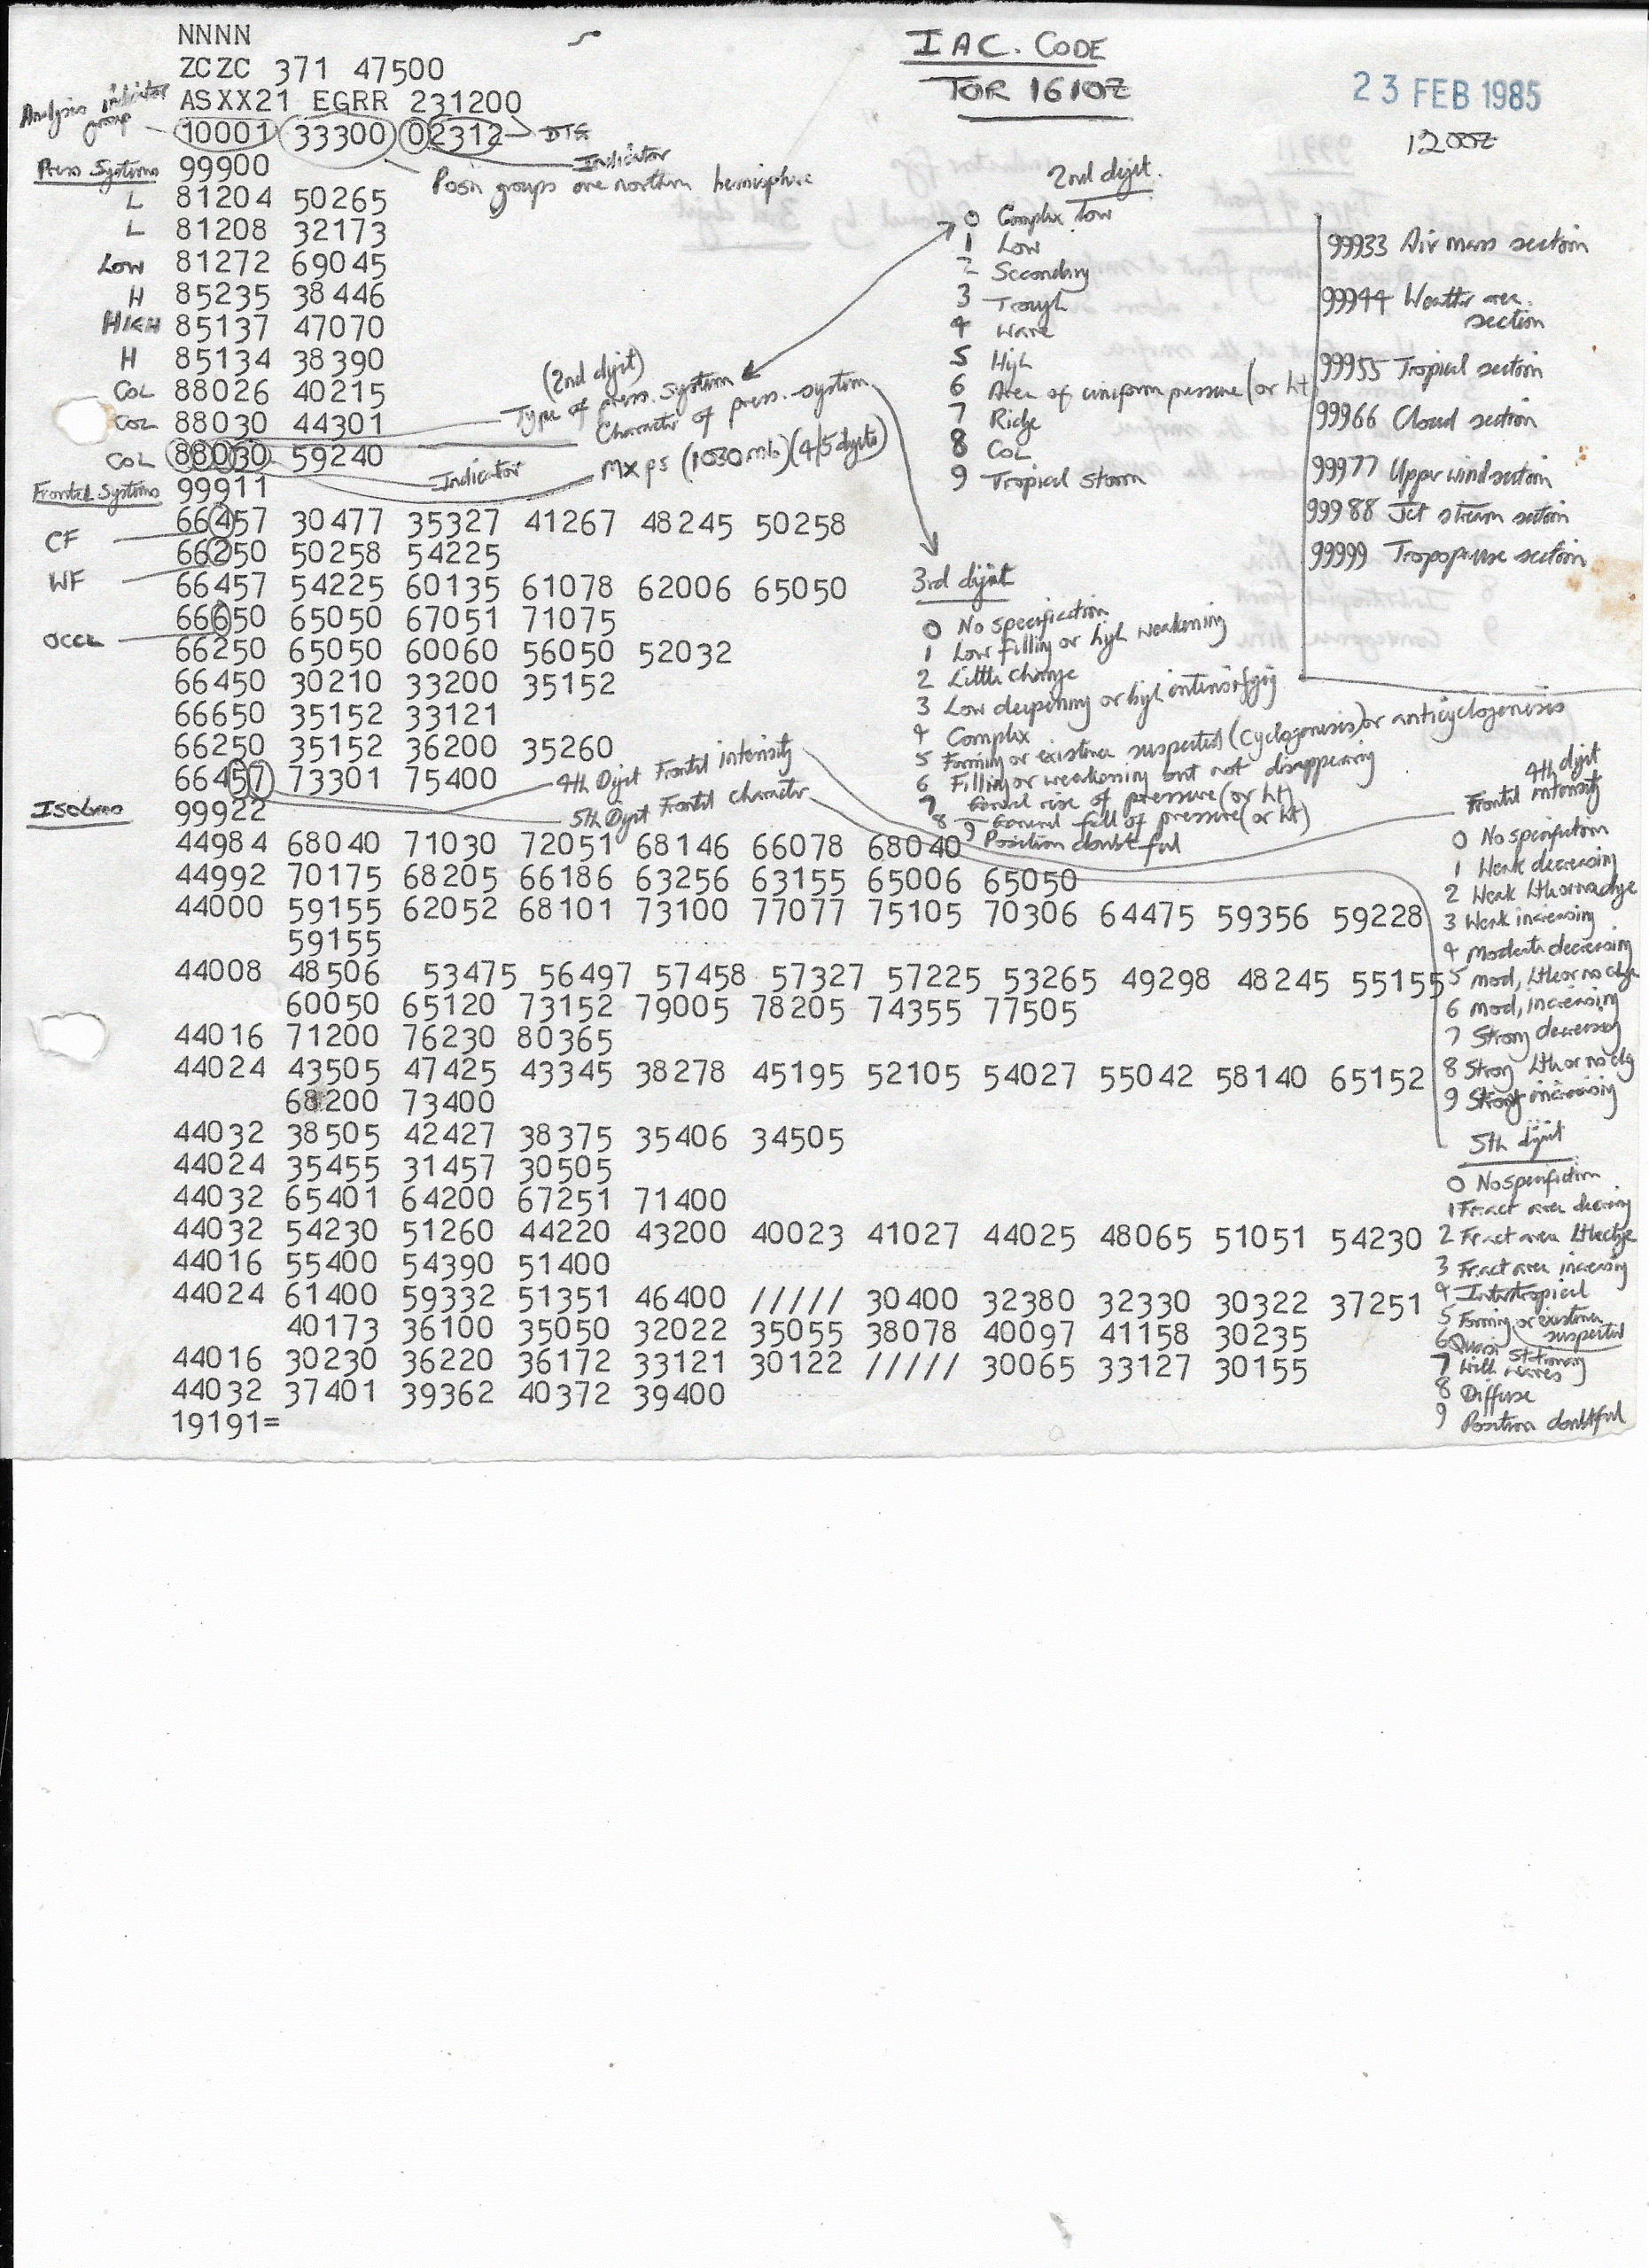 NNNN
ZCZC 371 47500
ASXX21 EGRR 231200
10001 33300 02312
Analysis indicator
group
DTG
Indicator
Posn groups are northern hemisphere
IAC. CODE
TOR 1610Z
23 FEB 1985
1200Z
Press Systems 99900
L 81204 50265
L 81208 32173
Low 81272 69045
H 85235 38446
HIGH 85137 47070
H 85134 38390
COL 88026 40215
COL 88030 44301
COL 88030 59240
(2nd digit)
Type of press. system
Character of press. system
Mx ps (1030 mb) (4/5 digits)
Indicator
2nd digit.
0 Complex low
1 Low
2 Secondary
3 Trough
4 Wave
5 High
6 Area of uniform pressure (or ht)
7 Ridge
8 COL
9 Tropical Storm
99933 Air mass section
99944 Weather area.
section
99955 Tropical section
99966 Cloud section
99977 Upper wind section
99988 Jet stream section
99999 Tropopause section
Frontal Systems 99911
CF 66457 30477 35327 41267 48245 50258
WF 66250 50258 54225
66457 54225 60135 61078 62006 65050
OCCL 66650 65050 67051 71075
66250 65050 60060 56050 52032
66450 30210 33200 35152
66650 35152 33121
66250 35152 36200 35260
66457 73301 75400
4th Digit Frontal intensity
5th Digit Frontal character
3rd digit
0 No specification
1 Low filling or high weakening
2 Little change
3 Low deepening or high intensifying
4 Complex
5 Forming or existence suspected (cyclogenesis) or anticyclogenesis
6 Filling or weakening but not disappearing
7 General rise of pressure (or ht)
8 General fall of pressure (or ht)
9 Position doubtful
Isobars 99922
44984 68040 71030 72051 68146 66078 68040
44992 70175 68205 66186 63256 63155 65006 65050
44000 59155 62052 68101 73100 77077 75105 70306 64475 59356 59228
59155
44008 48506 53475 56497 57458 57327 57225 53265 49298 48245 55155
60050 65120 73152 79005 78205 74355 77505
44016 71200 76230 80365
44024 43505 47425 43345 38278 45195 52105 54027 55042 58140 65152
68200 73400
44032 38505 42427 38375 35406 34505
44024 35455 31457 30505
44032 65401 64200 67251 71400
44032 54230 51260 44220 43200 40023 41027 44025 48065 51051 54230
44016 55400 54390 51400
44024 61400 59332 51351 46400 ///// 30400 32380 32330 30322 37251
40173 36100 35050 32022 35055 38078 40097 41158 30235
44016 30230 36220 36172 33121 30122 ///// 30065 33127 30155
44032 37401 39362 40372 39400
19191=
4th digit
Frontal intensity
0 No specification
1 Weak decreasing
2 Weak lthornochge
3 Weak increasing
4 Moderate decreasing
5 Mod, lttle or no chge
6 Mod, increasing
7 Strong decreasing
8 Strong lttl or no chg
9 Strong increasing
5th digit
0 No specification
1 Fr. act area decreasing
2 Fr act area lttle chge
3 Fr. act area increasing
4 Intertropical
5 Forming or existence
suspected
6 Quasi Stationary
7 With waves
8 Diffuse
9 Position doubtful